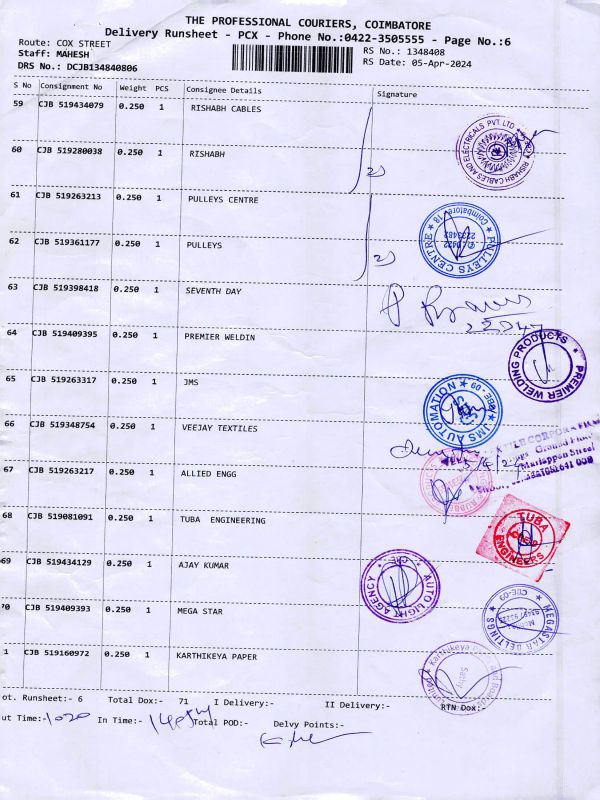 THE PROFESSIONAL COURIERS, COIMBATORE
Delivery Runsheet - PCX - Phone No.:0422-3505555 - Page No.:6
Route: COX STREET
Staff: MAHESH
DRS No.: DCJB134840806
RS No.: 1348408
RS Date: 05-Apr-2024
S No Consignment No Weight PCS Consignee Details Signature
59 CJB 519434079 0.250 1 RISHABH CABLES
RISHABH CABLES AND ELECTRICALS PVT. LTD
60 CJB 519280038 0.250 1 RISHABH
61 CJB 519263213 0.250 1 PULLEYS CENTRE
PULLEYS CENTRE Coimbatore 18
62 CJB 519361177 0.250 1 PULLEYS
63 CJB 519398418 0.250 1 SEVENTH DAY
64 CJB 519409395 0.250 1 PREMIER WELDIN
PREMIER WELDING PRODUCTS
65 CJB 519263317 0.250 1 JMS
JMS AUTOMATION CBE-09
66 CJB 519348754 0.250 1 VEEJAY TEXTILES
67 CJB 519263217 0.250 1 ALLIED ENGG
68 CJB 519081091 0.250 1 TUBA ENGINEERING
TUBA ENGINEERS
69 CJB 519434129 0.250 1 AJAY KUMAR
AUTO LIGHT AGENCY CBE
70 CJB 519409393 0.250 1 MEGA STAR
MEGASTAR BELTINGS CBE-09
1 CJB 519160972 0.250 1 KARTHIKEYA PAPER
ot. Runsheet:- 6 Total Dox:- 71 I Delivery:- II Delivery:- RTN Dox:-
ut Time:- 1020 In Time:- Total POD:- Delvy Points:-